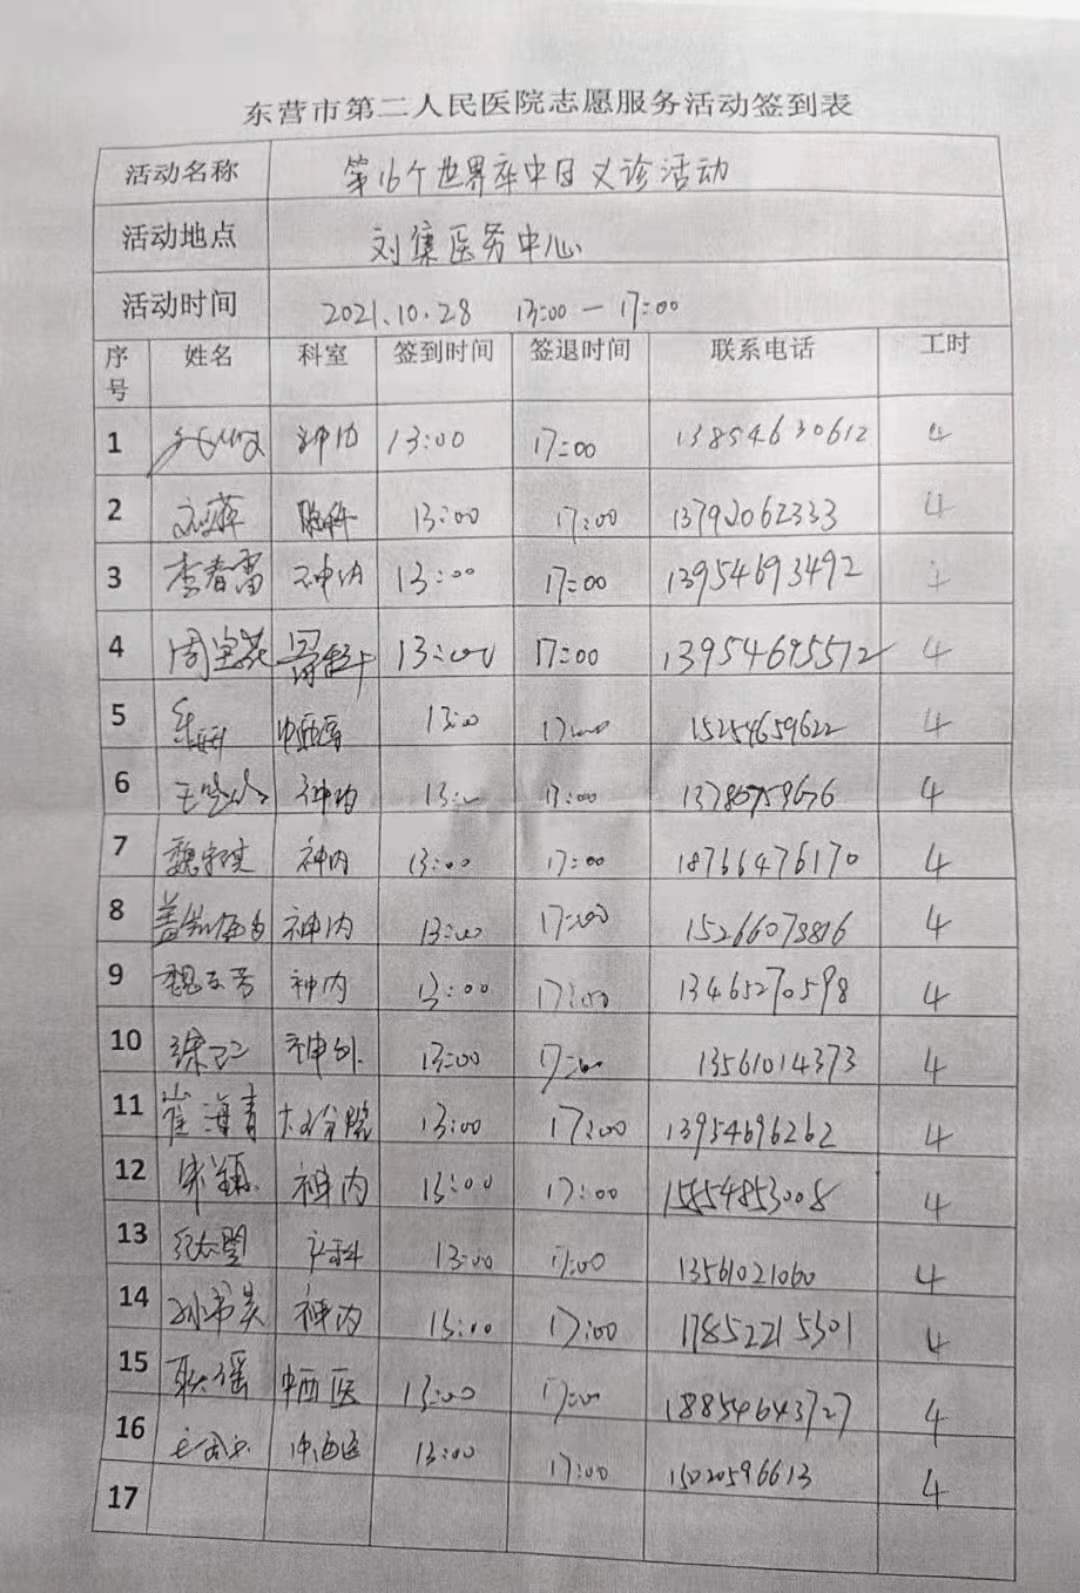 东营市第二人民医院志愿服务活动签到表
活动名称 第16个世界卒中日义诊活动
活动地点 刘集医务中心
活动时间 2021.10.28 13:00—17:00
序号 姓名 科室 签到时间 签退时间 联系电话 工时
1 神内 13:00 17:00 13854630612 4
2 13:00 17:00 13792062333 4
3 李春雷 神内 13:00 17:00 13954693492 4
4 周宝花 骨科 13:00 17:00 13954695512 4
5 中西医 13:00 17:00 15254659622 4
6 神内 13:00 17:00 4
7 神内 13:00 17:00 18766476170 4
8 神内 13:00 17:00 4
9 神内 13:00 17:00 13465270598 4
10 神外 13:00 17:00 13561014373 4
11 崔海青 13:00 17:00 13954696262 4
12 神内 13:00 17:00 15854853008 4
13 13:00 17:00 13561021060 4
14 神内 13:00 17:00 17852215301 4
15 中西医 13:00 17:00 18854643727 4
16 中西医 13:00 17:00 15020596613 4
17